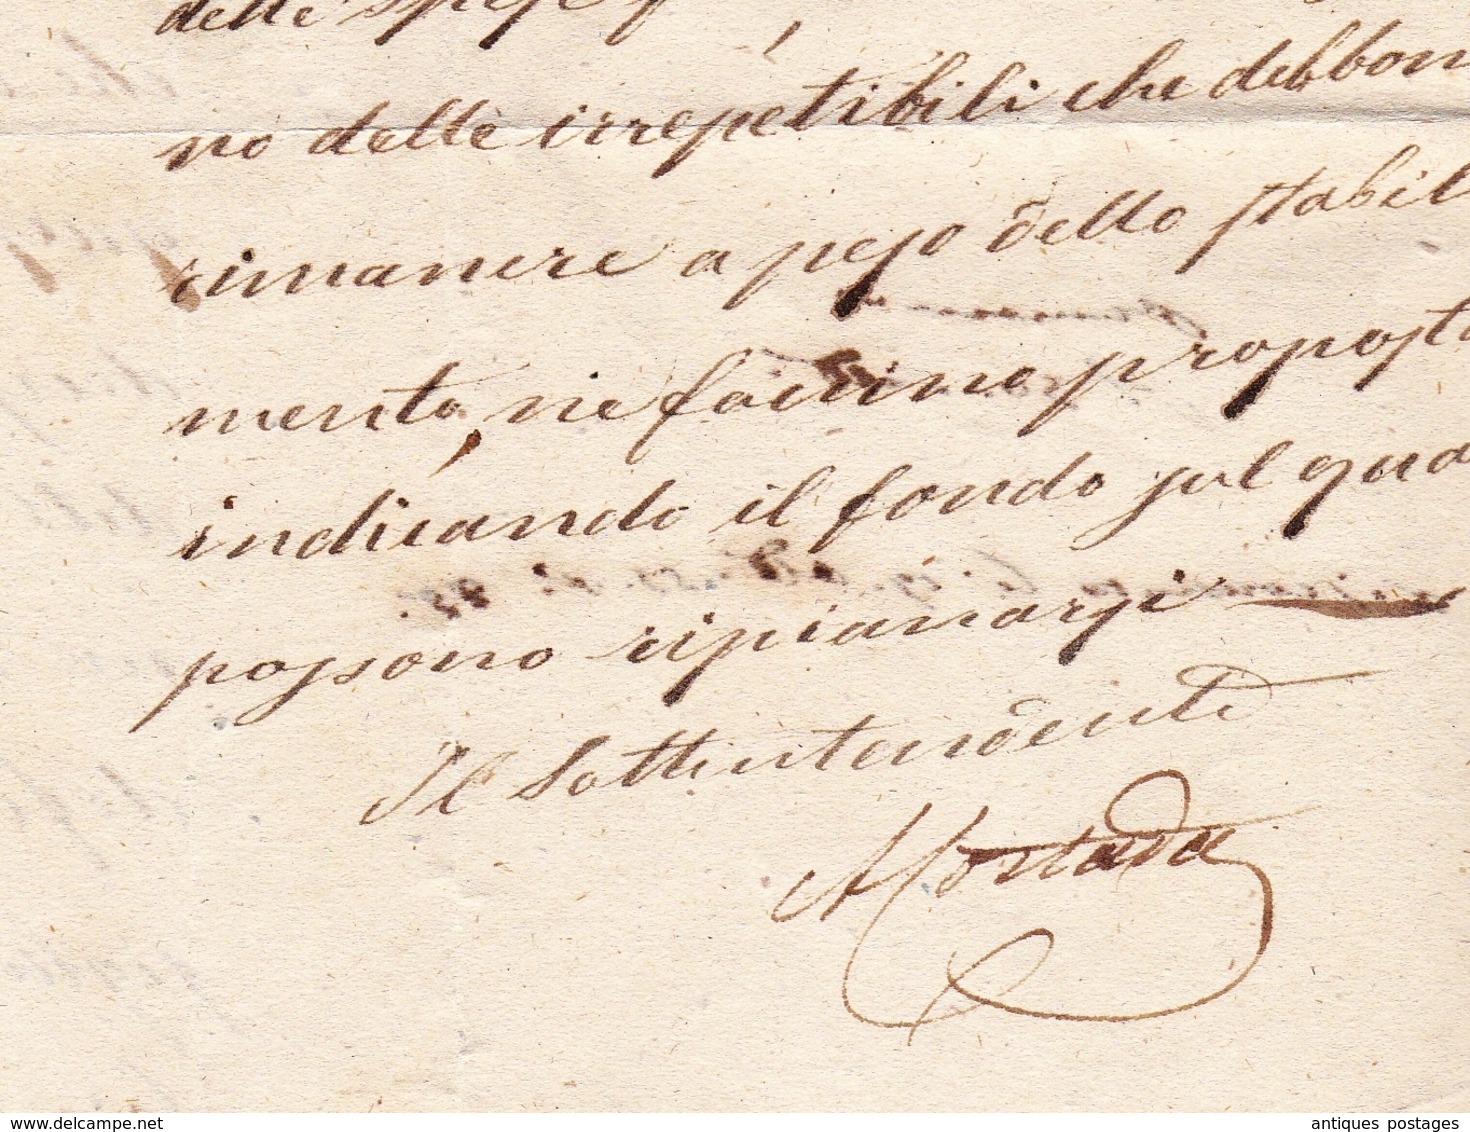 delle spese
no delle irrepetibili che debbon
rimanere a peso dello stabil
mento, ne faccino propost
indicando il fondo sul qua
possono ripianarsi
Il Sottintendente
delcampe.net
antiques postages